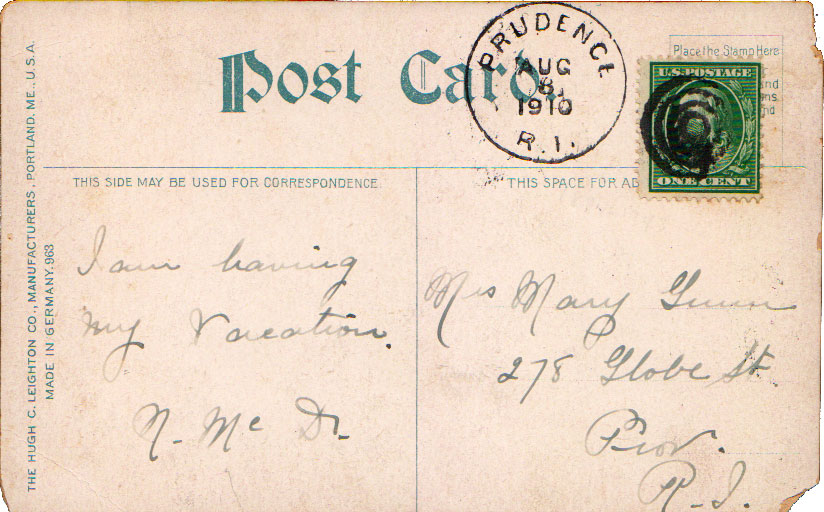 Post Card
PRUDENCE
AUG
8
1910
R. I.
Place the Stamp Here
U.S. POSTAGE
ONE CENT
THIS SIDE MAY BE USED FOR CORRESPONDENCE
THIS SPACE FOR AD
THE HUGH C. LEIGHTON CO., MANUFACTURERS, PORTLAND, ME., U.S.A.
MADE IN GERMANY. 963
I am having
my vacation.
N. Mc D.
Mrs Mary
278 Globe St.
Prov.
R.I.